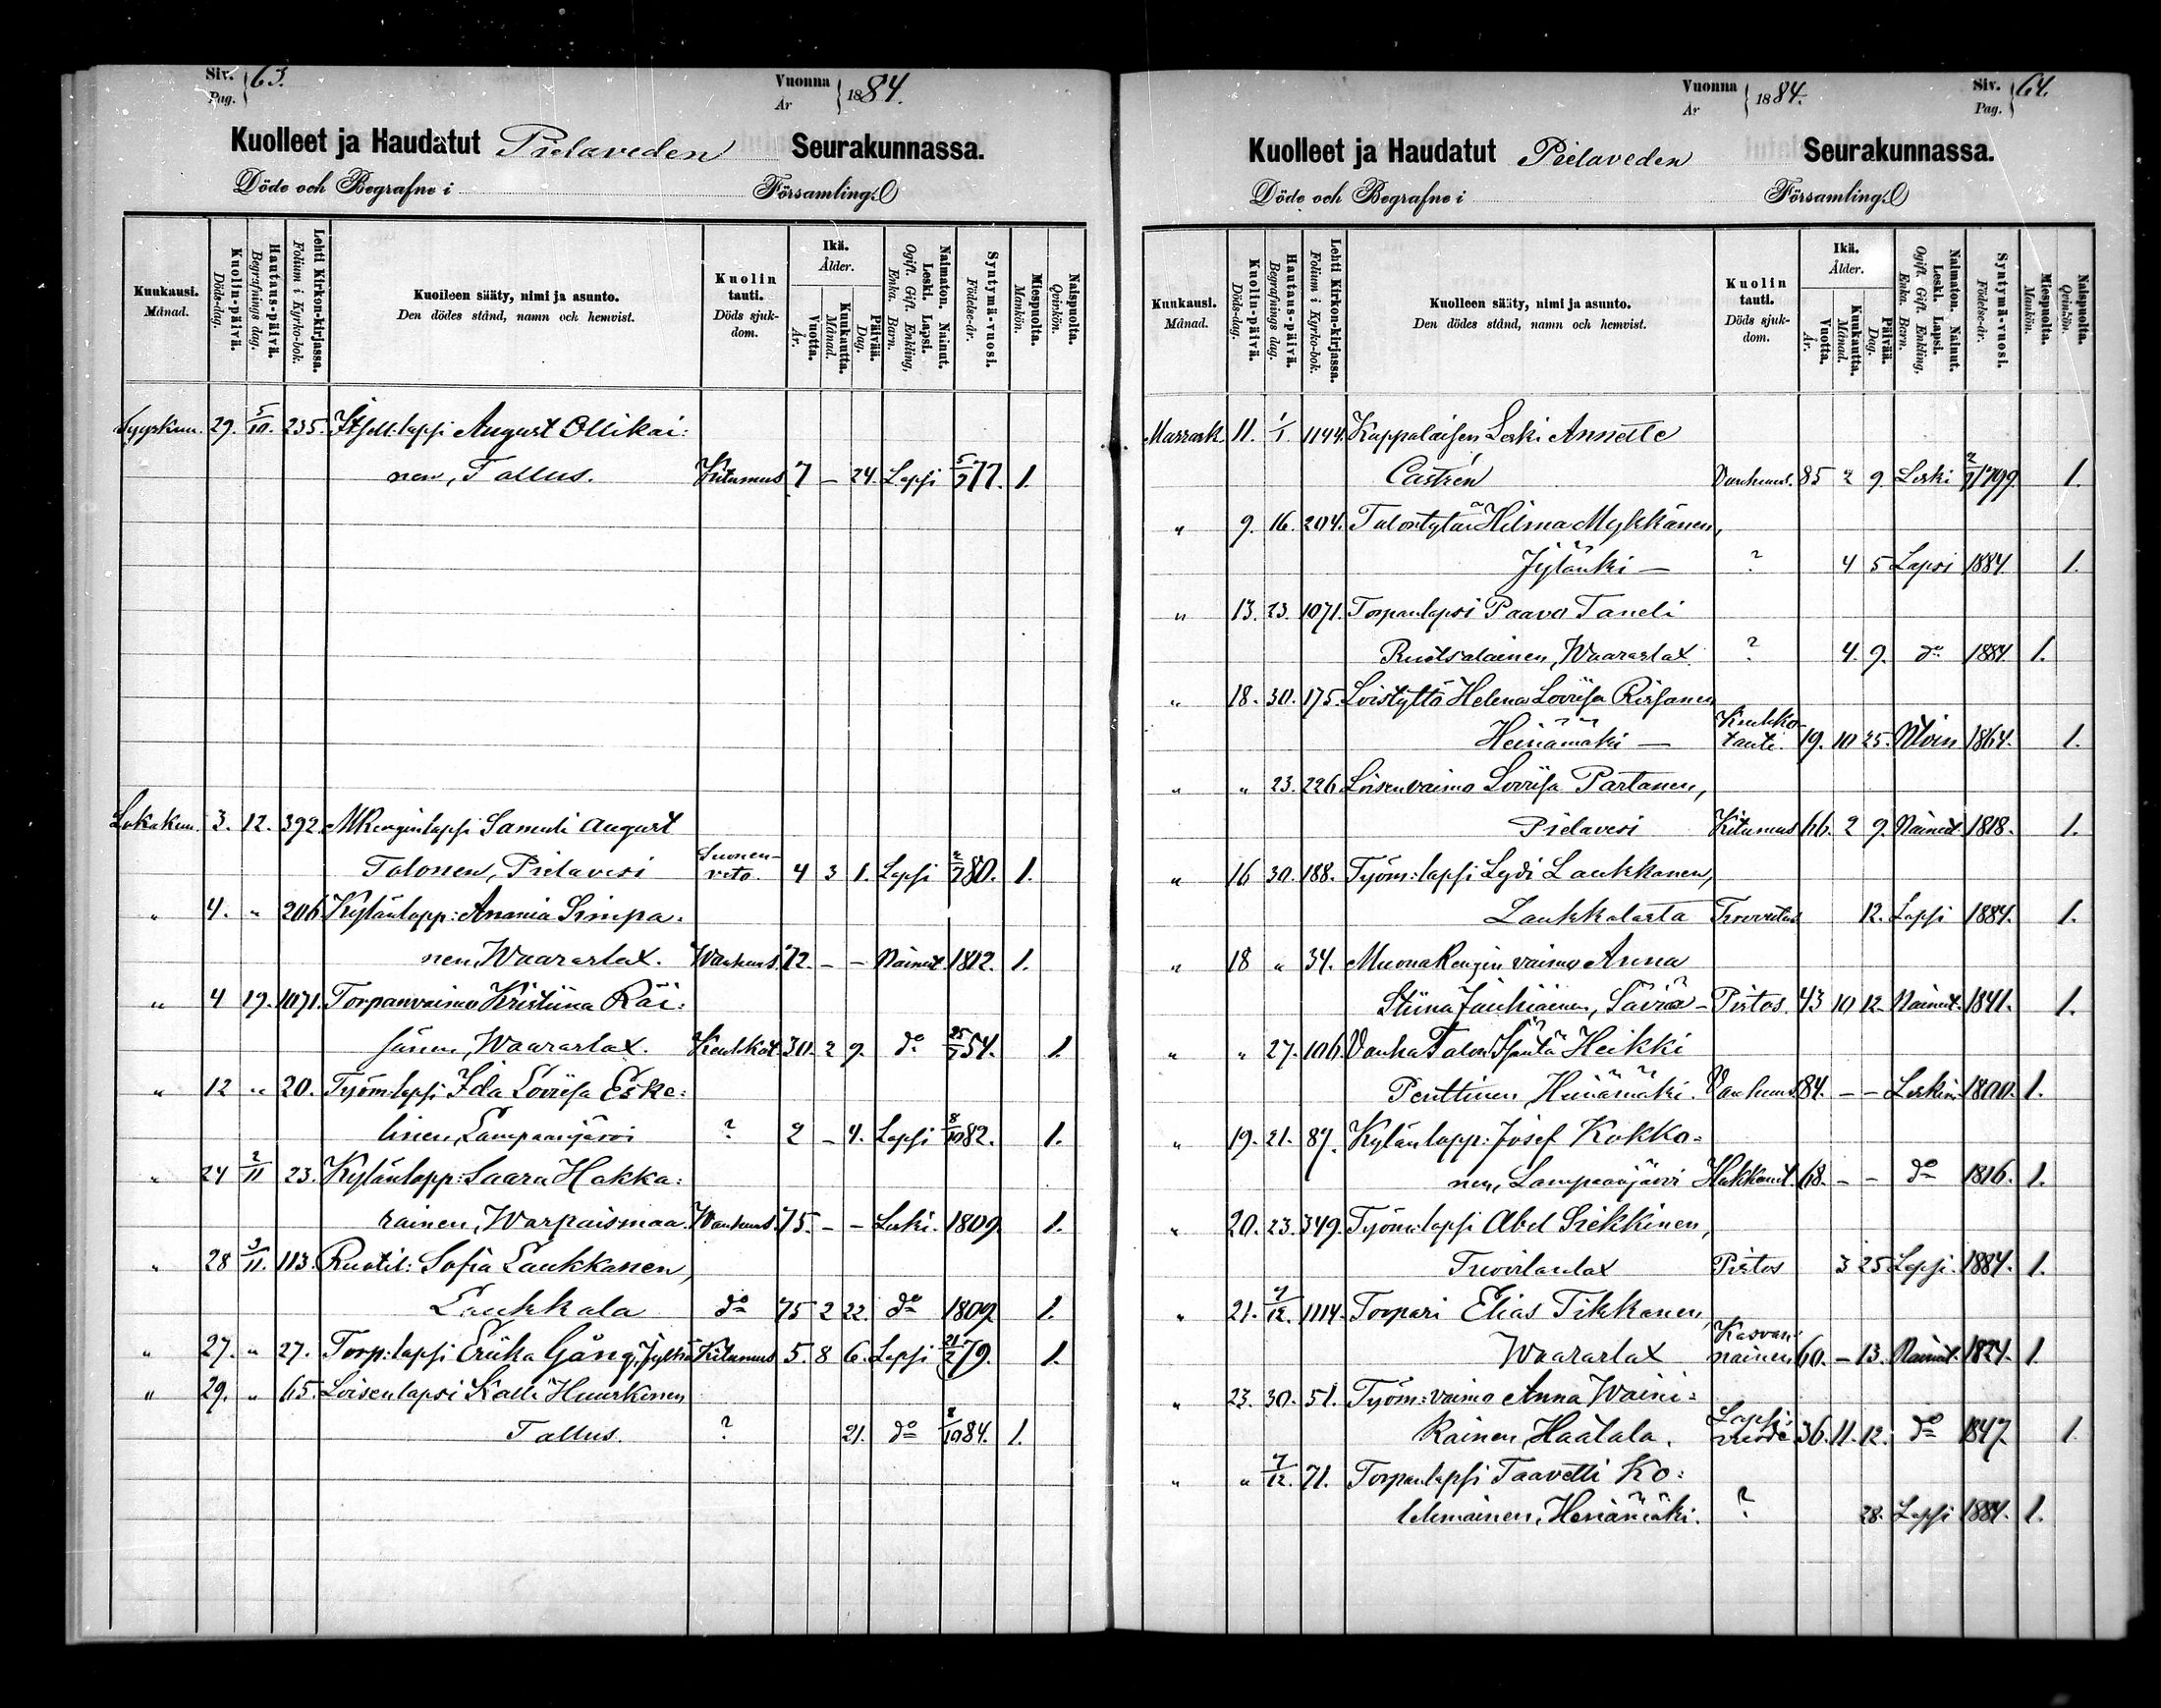 Siv. Pag. 63.
Vuonna År 1884.
Kuolleet ja Haudatut Pielaveden Seurakunnassa.
Döde och Begrafne i Församling.
Kuukausi. Månad.
Kuolin-päivä. Döds-dag.
Hautaus-päivä. Begrafnings dag.
Lehti Kirkon-kirjassa. Folium i Kyrko-bok.
Kuolleen sääty, nimi ja asunto. Den dödes stånd, namn och hemvist.
Kuolin tauti. Döds sjukdom.
Ikä. Ålder.
Vuotta. År.
Kuukautta. Månad.
Päivää. Dag.
Naimaton. Nainut. Leski. Lapsi. Ogift. Gift. Enkling, Enka. Barn.
Syntymä-vuosi. Födelse-år.
Miespuolta. Mankön.
Naispuolta. Qvinkön.
Syyskuu. 29. 5/10. 235. Itsell: lapsi August Ollikai:
nen, Tallus. Kitumus 7 – 24. Lapsi 5/9 77. 1.
Lokakuu. 3. 12. 392 MRenginlapsi Samuli August
Talonen, Pielavesi Suonen-veto. 4 3 1. Lapsi 2/7 80. 1.
" 4. " 206 Kylänlapp: Anania Simpa:
nen, Waaraslax. Wanhuus. 72. – – Nainut 1812. 1.
" 4 19. 1071. Torpanvaimo Kristiina Räi:
sänen, Waaraslax. Keuhkot. 30. 2 9. do 25/7 54. 1.
" 12 " 20. Työm: lapsi Ida Loviisa Eske:
linen, Lampaanjärvi ? 2 – 4. Lapsi 8/10 82. 1.
" 24 2/11 23. Kylänlapp: Saara Hakka:
rainen, Warpaismaa. Wanhuus. 75. – – Leski. 1809. 1.
" 28 3/11. 113. Ruotil: Sofia Laukkanen,
Laukkala do 75 2 22. do 1809 1.
" 27. " 27. Torp: lapsi Eriika Gång, Kitumus 5. 8 6. Lapsi 21/2 79. 1.
" 29. " 65. Loisenlapsi Kalle Huuskonen
Tallus. ? 21. do 8/10 84. 1.
Vuonna År 1884.
Siv. Pag. 64.
Kuolleet ja Haudatut Pielaveden Seurakunnassa.
Döde och Begrafne i Församling.
Kuukausi. Månad.
Kuolin-päivä. Döds-dag.
Hautaus-päivä. Begrafnings dag.
Lehti Kirkon-kirjassa. Folium i Kyrko-bok.
Kuolleen sääty, nimi ja asunto. Den dödes stånd, namn och hemvist.
Kuolin tauti. Döds sjukdom.
Ikä. Ålder.
Vuotta. År.
Kuukautta. Månad.
Päivää. Dag.
Naimaton. Nainut. Leski. Lapsi. Ogift. Gift. Enkling, Enka. Barn.
Syntymä-vuosi. Födelse-år.
Miespuolta. Mankön.
Naispuolta. Qvinkön.
Marrask. 11. 1/1. 1144. Kappalaisen Leski Annette
Castrén Vanhuus. 85 2 9. Leski 2/9 1799. 1.
" 9. 16. 204. Talontytär Hilma Mykkänen,
Jylänki – ? 4 5 Lapsi 1884. 1.
" 13. 23. 1071. Torpanlapsi Paavo Taneli
Ruotsalainen, Waaraslax. ? 4. 9. do 1884. 1.
" 18. 30. 175. Loistyttö Helena Loviisa Rissanen
Heinämäki – Keuhko-tauti. 19. 10 25. 1864. 1.
" " 23. 226 Loisenvaimo Loviisa Partanen,
Pielavesi Kitumus 66. 2 9. Nainut. 1818. 1.
" 16 30. 188. Työm: lapsi Lydi Laukkanen,
Laukkalasta 12. Lapsi 1884. 1.
" 18 " 34. MuonaRengin vaimo Anna
Stiina Jauhiainen, Säviä – Pistos. 43 10 12. Nainut. 1841. 1.
" " 27. 106. Vanha Talon Isäntä Heikki
Penttinen, Heinämäki. Vanhuus. 84. – – Leskim. 1800. 1.
" 19. 21. 87. Kylänlapp: Josef Kokko:
nen, Lampaanjärvi Halkkaut. 68. – – do 1816. 1.
" 20. 23. 349. Työm: lapsi Abel Siekkinen,
Tuovilanlax Pistos 3 25 Lapsi. 1884. 1.
" 21. 7/12. 1114. Torpari Elias Tikkanen,
Waaraslax Kasvannainen 60. – 13. Nainut. 1824. 1.
" 23. 30. 51. Työm: vaimo Anna Waini:
kainen, Haatala. Lapsivuode 36. 11. 12. do 1847. 1.
" " 7/12. 71. Torpanlapsi Taavetti Ko:
lehmainen, Heinämäki. ? 28. Lapsi 1884. 1.